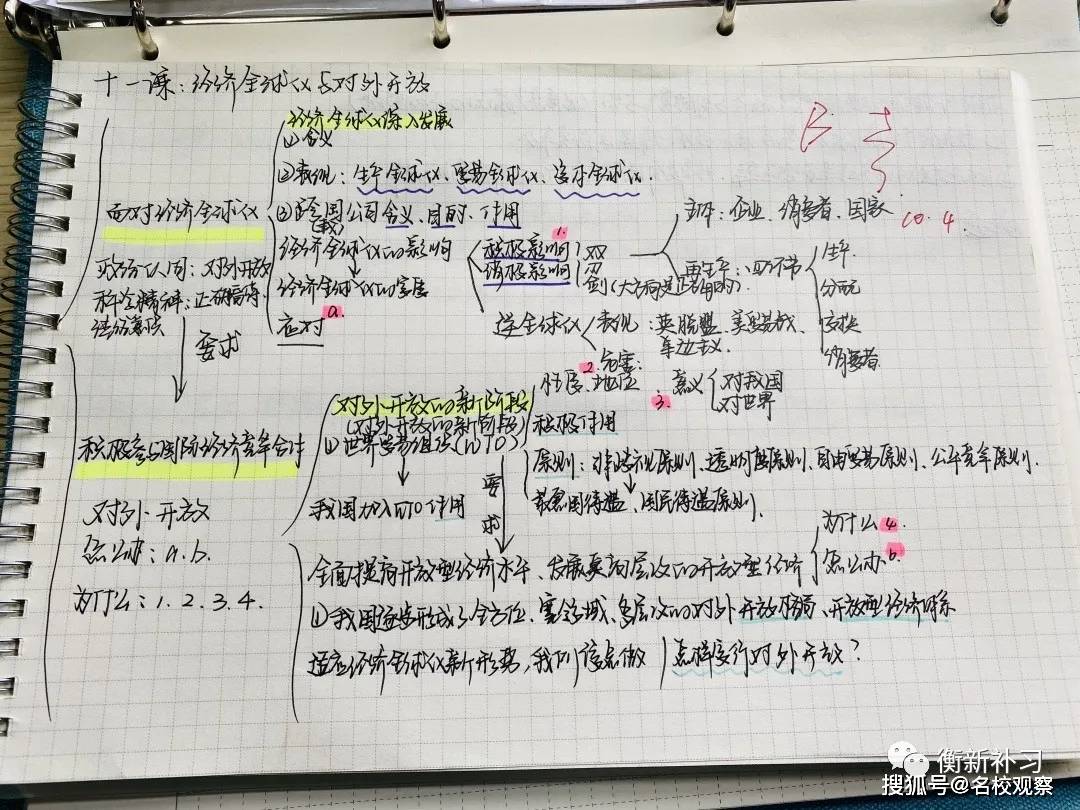 十一课：经济全球化与对外开放
B 去
10.4
面对经济全球化
政治认同：对外开放
科学精神：正确看待
经济全球化深入发展
①含义
②表现：生产全球化、贸易全球化、资本全球化.
③跨国公司含义、目的、作用
(载)
经济全球化的影响
1.
积极影响
消极影响
双
刃
剑(大方向是正确的).
主体：企业、消费者、国家
再生产：四环节
生产
分配
交换
消费者
经济全球化的发展
应对
a.
逆全球化
表现：英脱盟、美贸战、
单边主义.
2.危害:
要求
积极参与国际经济竞争合作
对外开放
怎么办：a.b.
为什么：1.2.3.4.
对外开放的新阶段
(对外开放的新阶段)
①世界贸易组织(WTO)
性质、地位
3.
意义
对我国
对世界
积极作用
原则：非歧视原则、透明度原则、自由贸易原则、公平竞争原则.
最惠国待遇、国民待遇原则.
我国加入WTO作用
要求
全面提高开放型经济水平、发展更高层次的开放型经济
为什么4.
怎么办b.
①我国逐步形成了全方位、宽领域、多层次的对外开放格局、开放型经济体系
适应经济全球化新形势，我们该怎做
怎样实行对外开放？
衡新补习
搜狐号@名校观察